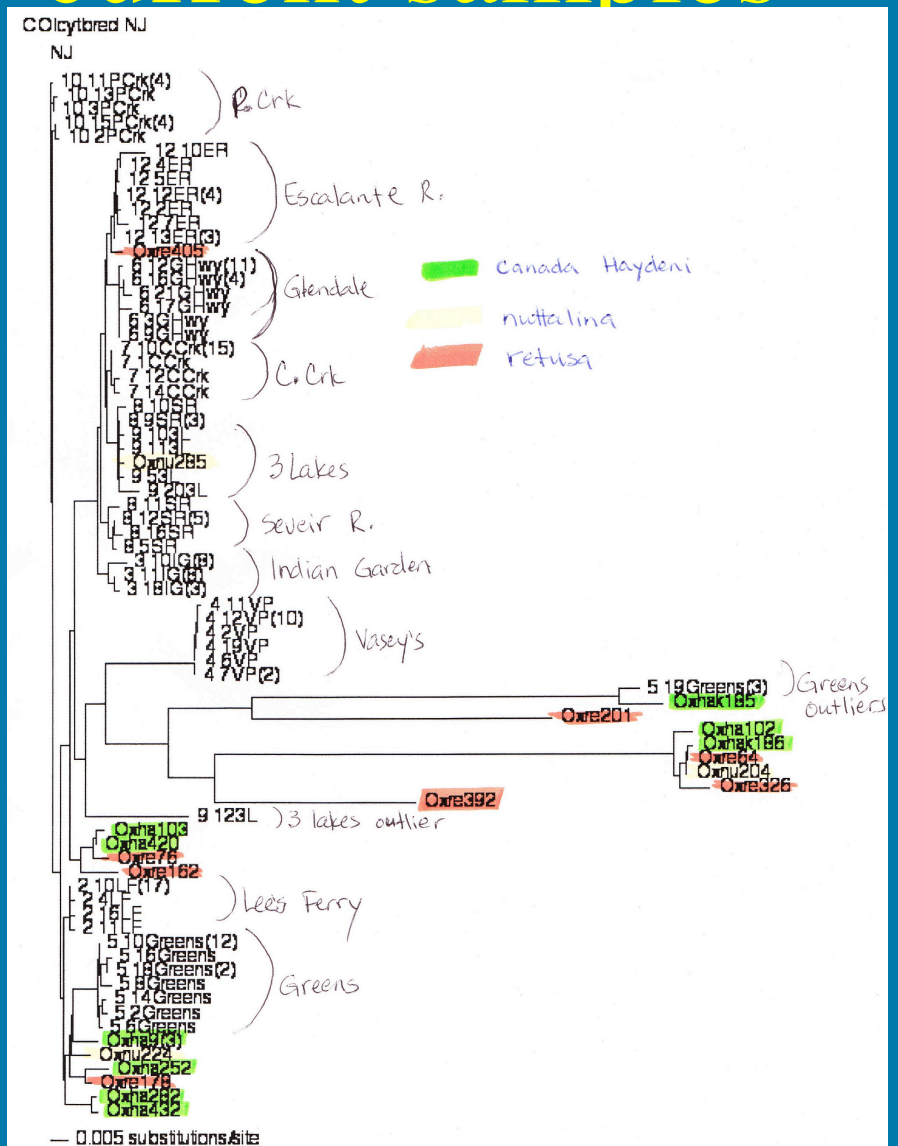 current samples
COIcytbred NJ
NJ
10 11PCrk(4)
10 13PCrk
10 3PCrk
10 15PCrk(4)
10 2PCrk
P. Crk
12 10ER
12 4ER
12 5ER
12 12ER(4)
12 2ER
12 7ER
12 13ER(3)
Escalante R.
Oxre405
6 12GHwy(11)
6 16GHwy(4)
6 21GHwy
6 17GHwy
6 3GHwy
6 9GHwy
Glendale
Canada Haydeni
nuttalina
retusa
7 10CCrk(15)
7 1CCrk
7 12CCrk
7 14CCrk
C. Crk
8 10SR
8 9SR(3)
9 103L
9 113L
Oxnu285
9 53L
9 203L
3 Lakes
8 11SR
8 12SR(5)
8 16SR
8 5SR
Seveir R.
3 10IG(8)
3 11IG(8)
3 18IG(3)
Indian Garden
4 11VP
4 12VP(10)
4 2VP
4 19VP
4 6VP
4 7VP(2)
Vasey's
5 19Greens(3)
Oxhak185
Greens
outliers
Oxre201
Oxha102
Oxhak186
Oxre64
Oxnu204
Oxre326
Oxre392
9 123L
3 lakes outlier
Oxha103
Oxha420
Oxre76
Oxre162
2 10LF(17)
2 4LF
2 16LF
2 11LF
Lees Ferry
5 10Greens(12)
5 16Greens
5 18Greens(2)
5 8Greens
5 14Greens
5 2Greens
5 6Greens
Greens
Oxha9(3)
Oxnu224
Oxha252
Oxre178
Oxha282
Oxha432
0.005 substitutions/site